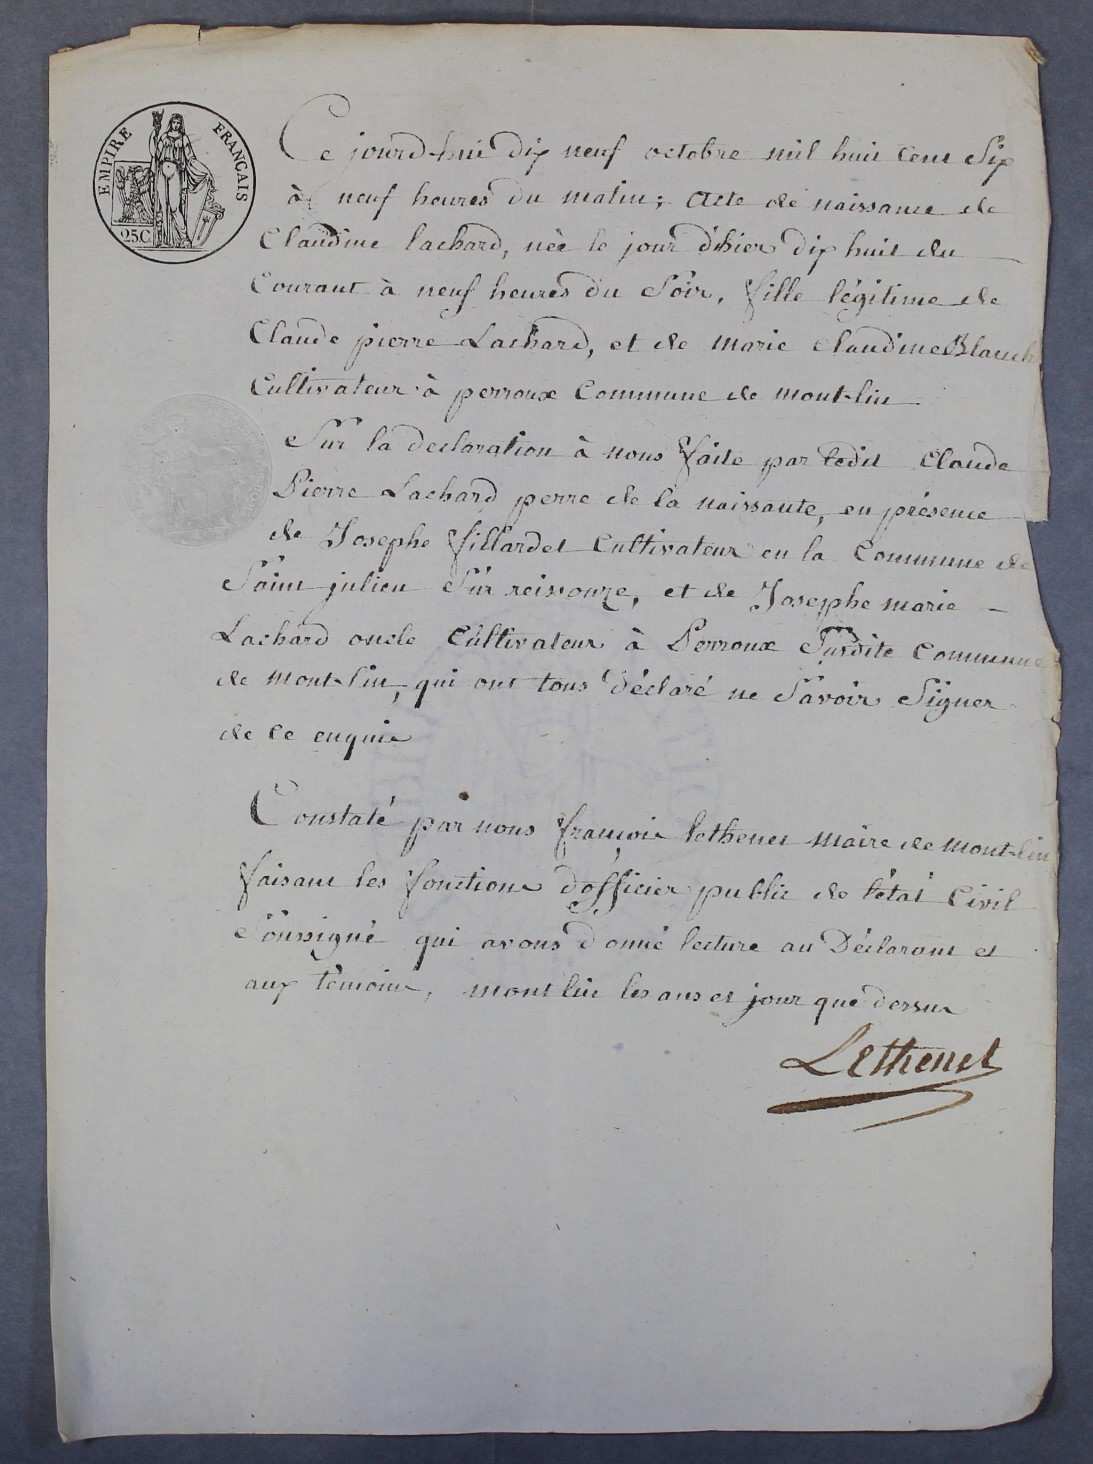 EMPIRE FRANÇAIS
25C
Ce jourd-hui dix neuf octobre mil huit cent Six
à neuf heures du matin; Acte de naissance de
Claudine Lachard, née le jour d'hier dix huit du
Courant à neuf heures du Soir, fille légitime de
Claude pierre Lachard, et de marie claudine Blanch
Cultivateur à perroux Commune de mont-lin
Sur la declaration à nous faite par ledit Claude
Pierre Lachard perre de la naissante, en présence
de Josephe fillardet Cultivateur en la Commune de
Saint julien Sur reissouze, et de Josephe marie
Lachard oncle Cultivateur à Perroux Susdite Commune
de mont-lin, qui ont tous déclaré ne Savoir Signer
de ce enquis
Constaté par nous françois lethenet maire de mont-lin
faisant les fonctions d'officier public de l'état Civil
Soussigné qui avons donné lecture au Déclarant et
aux témoins, mont lin les ans et jour que dessus
Lethenet